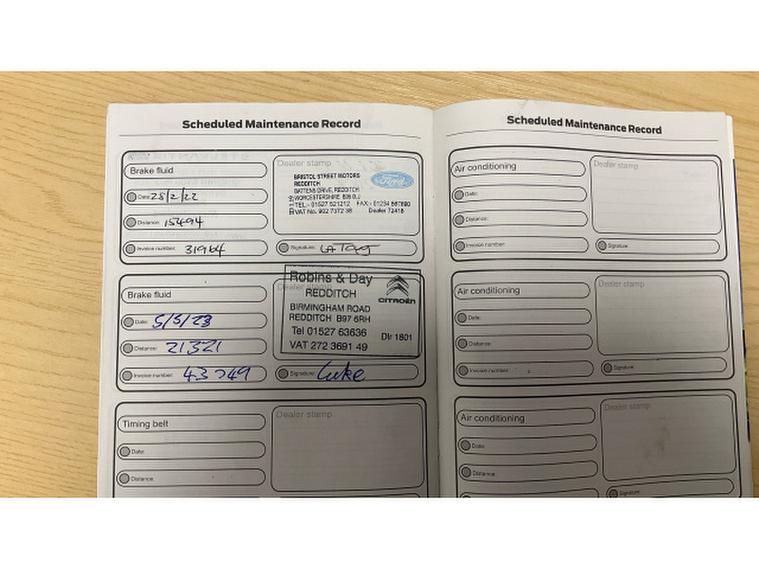 Scheduled Maintenance Record
Brake fluid
Date: 25/2/22
Distance: 15494
Invoice number: 31964
Dealer stamp
BRISTOL STREET MOTORS
REDDITCH
BATTENS DRIVE, REDDITCH
WORCESTERSHIRE
TEL:- 01527 521212 FAX:- 01234 567890
VAT No. 902 7372 38 Dealer 72418
Ford
Signature:
Brake fluid
Date: 5/5/23
Distance: 21321
Invoice number: 43049
Robins & Day
REDDITCH
CITROËN
BIRMINGHAM ROAD
REDDITCH B97 6RH
Tel 01527 63636 Dlr 1801
VAT 272 3691 49
Signature: Luke
Timing belt
Date:
Distance:
Dealer stamp
Scheduled Maintenance Record
Air conditioning
Date:
Distance:
Invoice number:
Dealer stamp
Signature
Air conditioning
Date:
Distance:
Invoice number:
Dealer stamp
Signature
Air conditioning
Date:
Distance:
Dealer stamp
Signature